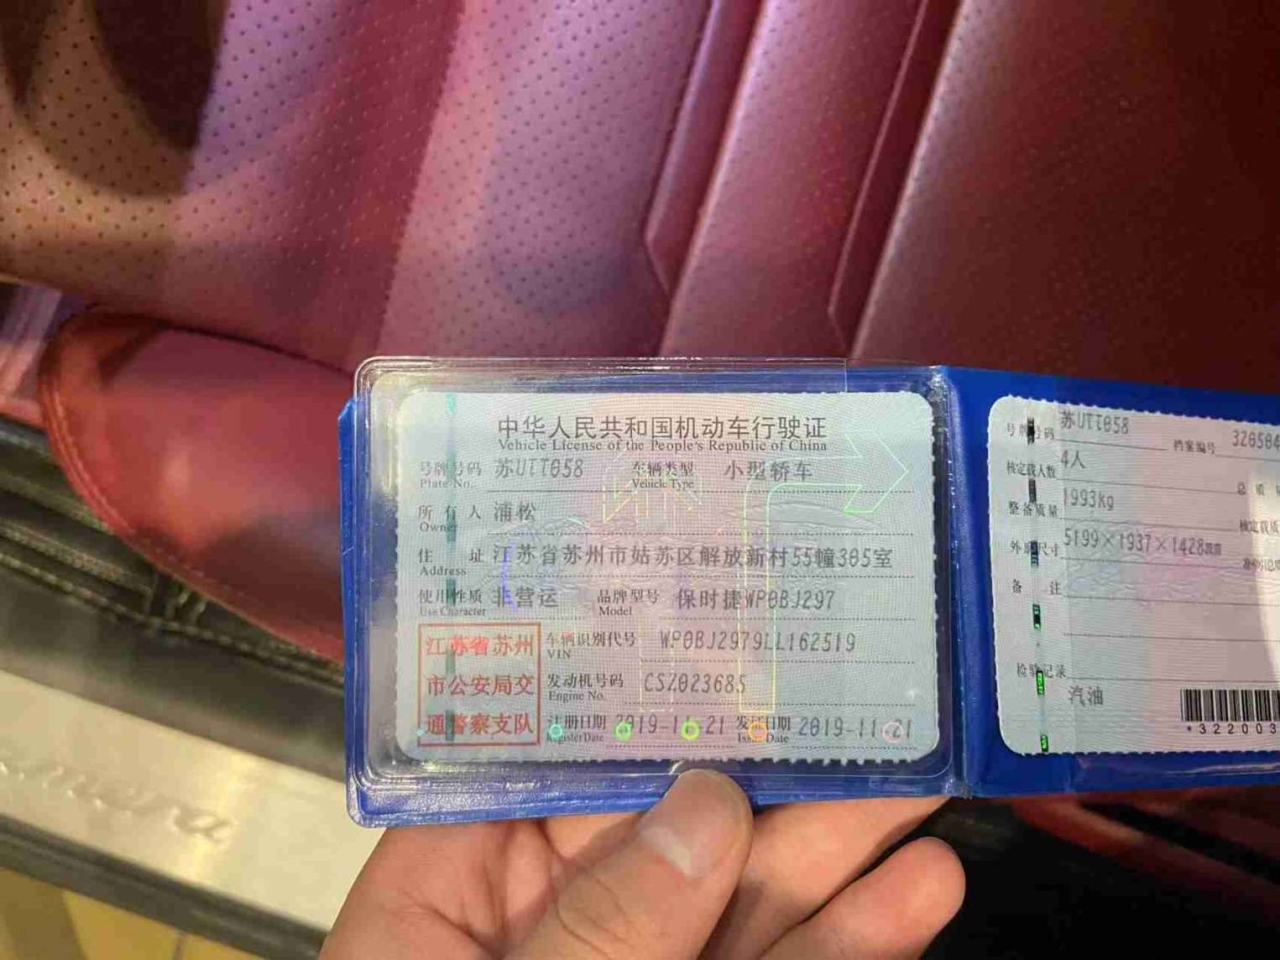 中华人民共和国机动车行驶证
Vehicle License of the People's Republic of China
号牌号码 苏UTT058 车辆类型 小型轿车
Plate No. Vehicle Type
所有人 浦松
Owner
住址 江苏省苏州市姑苏区解放新村55幢305室
Address
使用性质 非营运 品牌型号 保时捷WP0BJ297
Use Character Model
江苏省苏州
市公安局交
通警察支队
车辆识别代号 WP0BJ2979LL162519
VIN
发动机号码 CSZ023685
Engine No.
注册日期 2019-11-21 发证日期 2019-11-21
Register Date Issue Date
号牌号码 苏UTT058 档案编号 320504
核定载人数 4人 总质
整备质量 1993kg 核定载质
外廓尺寸 5199×1937×1428
备注
检验记录
汽油
*322003